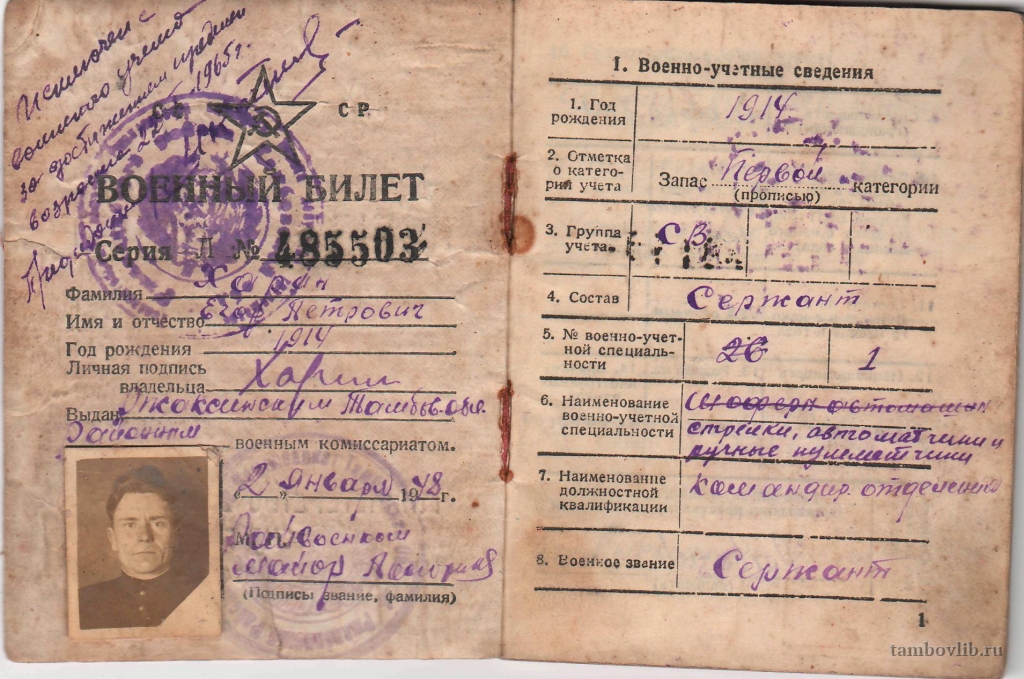 Исключен с
воинского учета
за достижением предельн
возраста 22 1965г.
С Р
ВОЕННЫЙ БИЛЕТ
Серия Л № 485503
Фамилия Харин
Имя и отчество Егор Петрович
Год рождения 1914
Личная подпись
владельца Харин
Выдан Токаревским Тамбовск. обл.
Районным военным комиссариатом.
„2" января 1948 г.
М. П. Райвоенком
майор
(Подписы звание, фамилия)
1. Военно-учетные сведения
1. Год
рождения 1914
2. Отметка
о катего-
рии учета Запас Первой категории
(прописью)
3. Группа
учета СВ
4. Состав Сержант
5. № военно-учет-
ной специаль-
ности 26 1
6. Наименование
военно-учетной
специальности
стрелки, автоматчики и
ручные пулеметчики
7. Наименование
должностной
квалификации командир отделения
8. Военное звание Сержант
1
tambovlib.ru